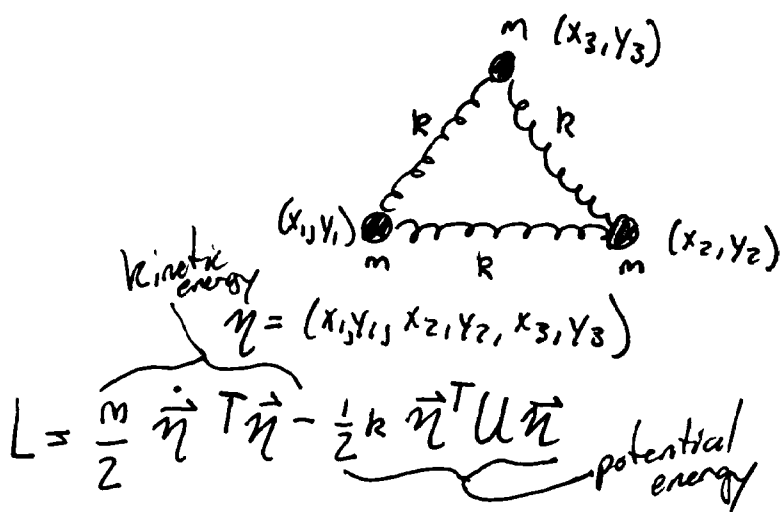 m (x₃, y₃)
k k
(x₁, y₁) (x₂, y₂)
m k m
kinetic
energy
η = (x₁, y₁, x₂, y₂, x₃, y₃)
L = m/2 \dot{\vec{η}} T \vec{η} - 1/2 k \vec{η}^T U \vec{η}
potential
energy